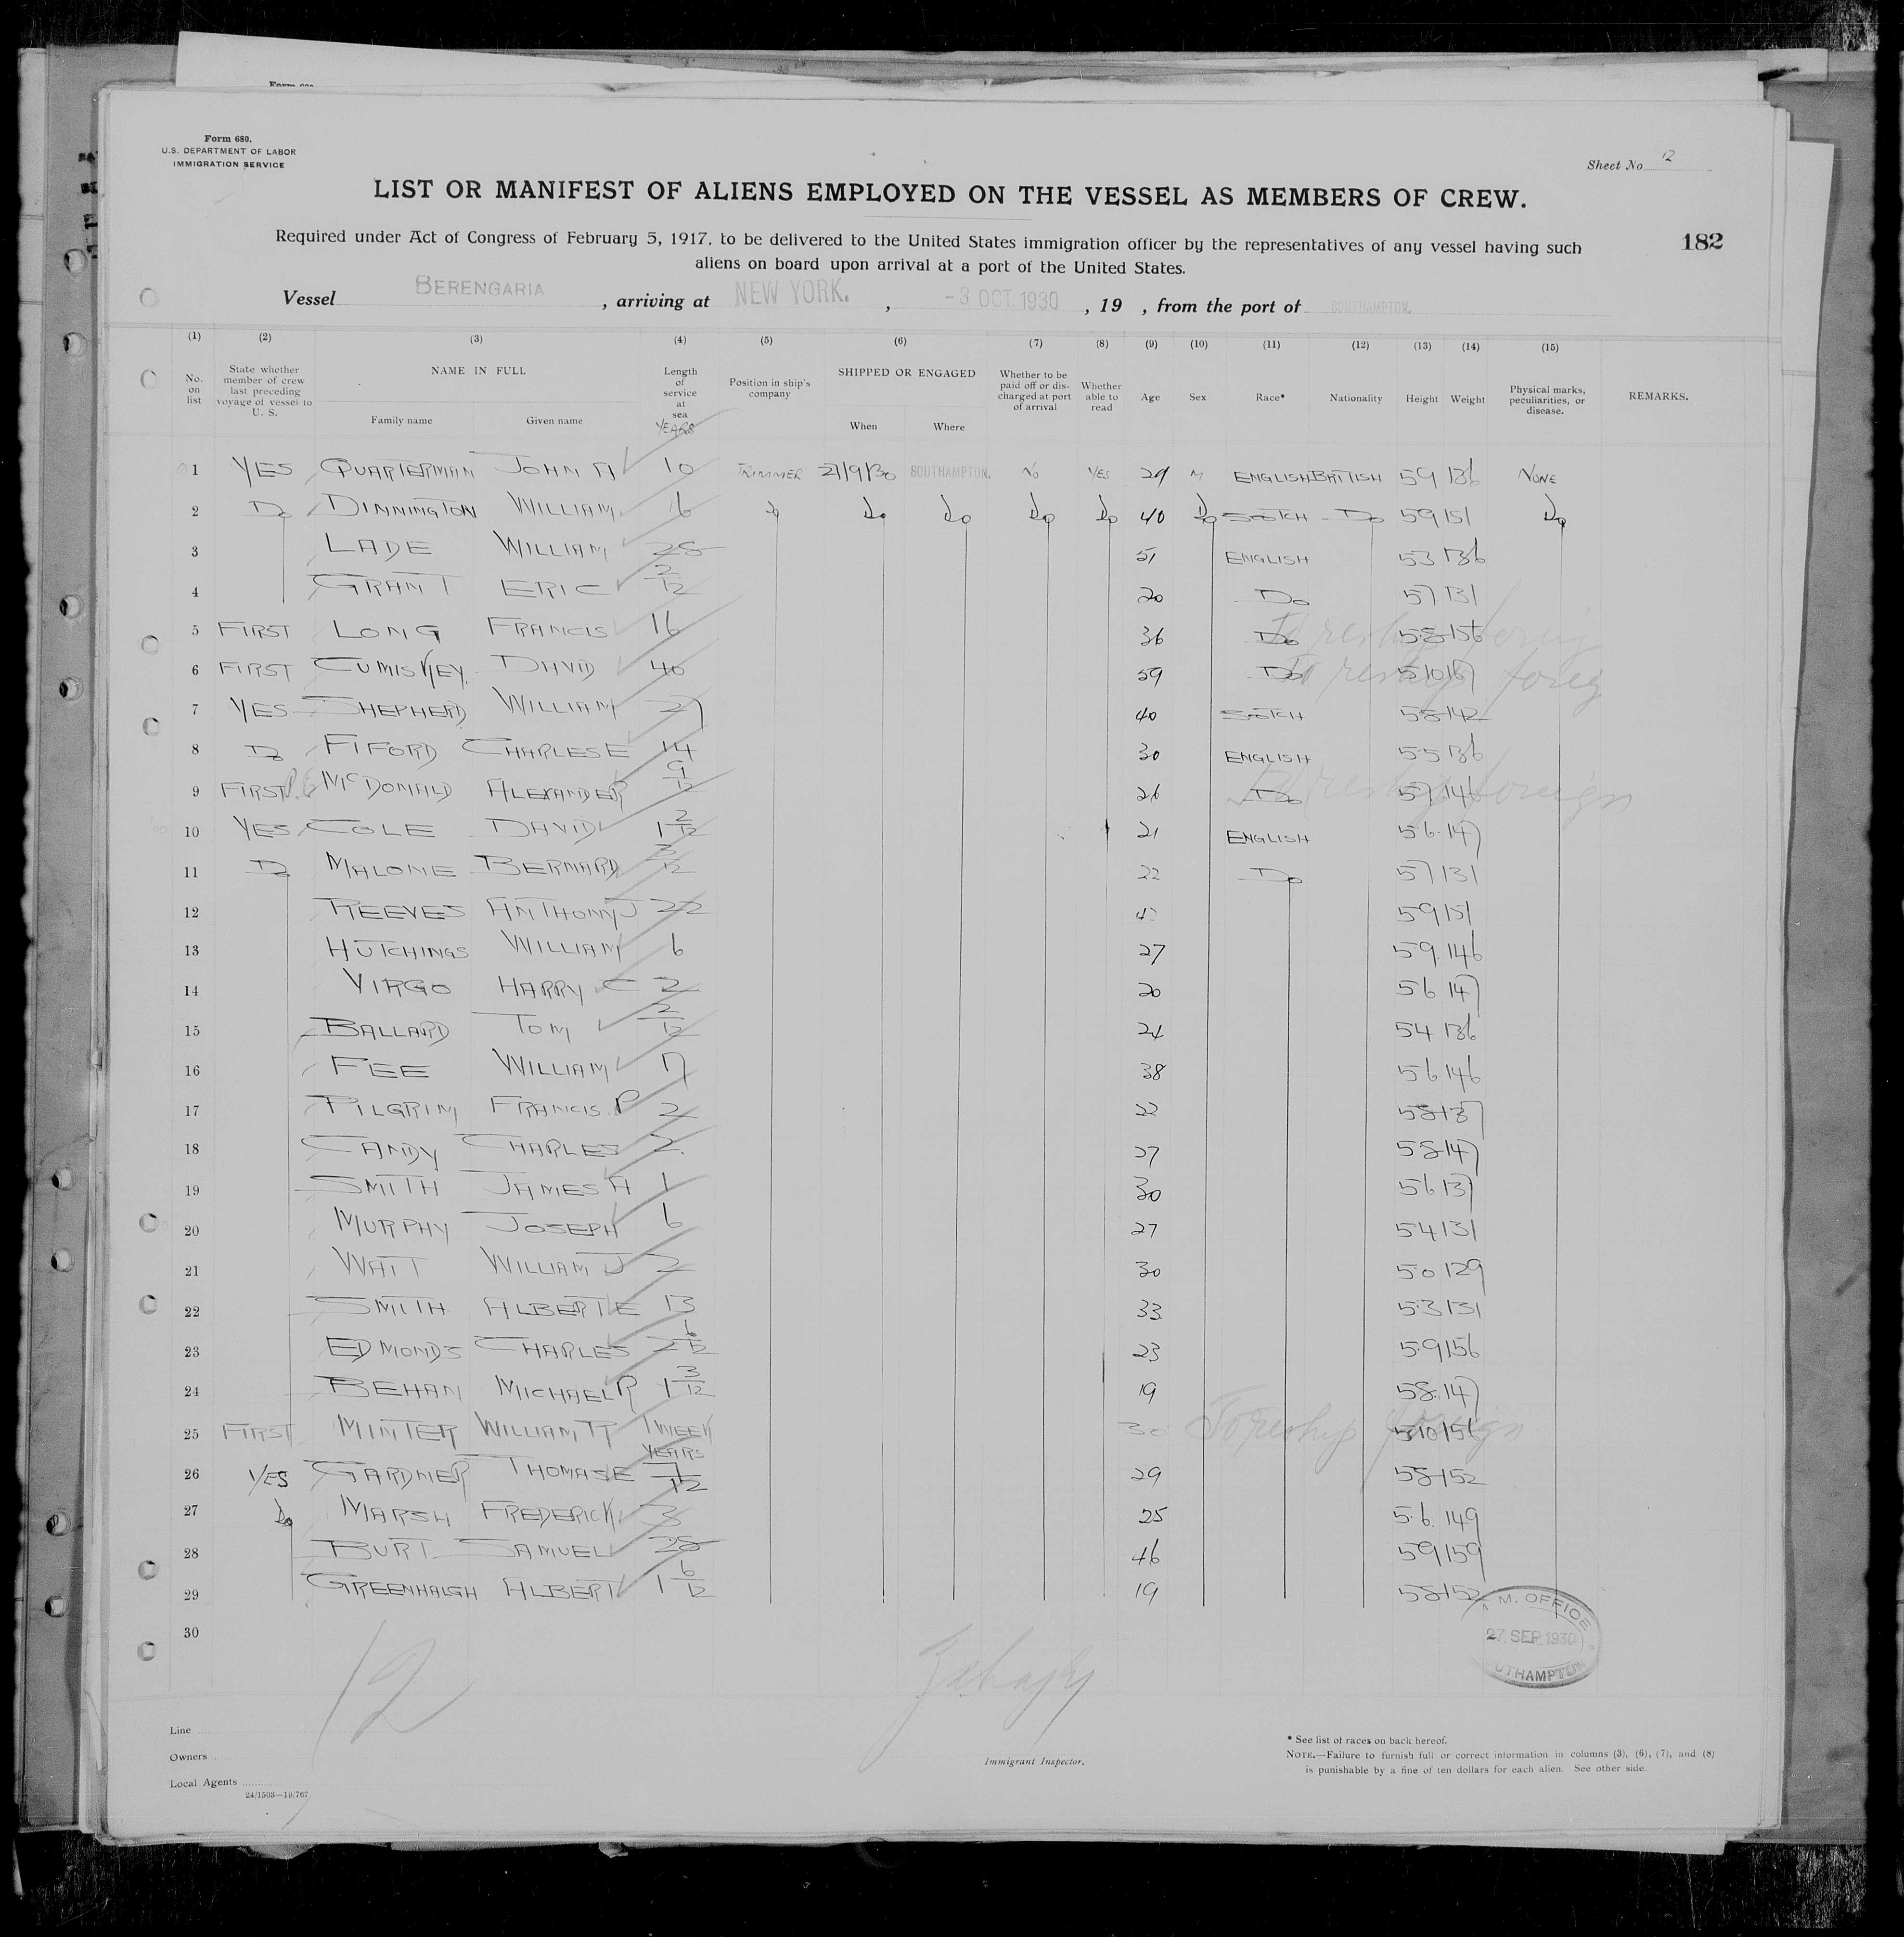 Form 680.
U.S. DEPARTMENT OF LABOR
IMMIGRATION SERVICE
Sheet No. 12
LIST OR MANIFEST OF ALIENS EMPLOYED ON THE VESSEL AS MEMBERS OF CREW.
182
Required under Act of Congress of February 5, 1917, to be delivered to the United States immigration officer by the representatives of any vessel having such
aliens on board upon arrival at a port of the United States.
Vessel BERENGARIA, arriving at NEW YORK., -3 OCT. 1930, 19 , from the port of SOUTHAMPTON.
(1) (2) (3) (4) (5) (6) (7) (8) (9) (10) (11) (12) (13) (14) (15)
No. on list State whether member of crew last preceding voyage of vessel to U. S. NAME IN FULL Family name Given name Length of service at sea YEARS Position in ship's company SHIPPED OR ENGAGED When Where Whether to be paid off or discharged at port of arrival Whether able to read Age Sex Race* Nationality Height Weight Physical marks, peculiarities, or disease. REMARKS.
1 YES QUARTERMAN JOHN A 10 TRIMMER 27/9/30 SOUTHAMPTON. NO YES 29 M ENGLISH BRITISH 59 136 NONE
2 Do DINNINGTON WILLIAM 16 Do Do Do Do Do 40 Do SCOTCH Do 59 151 Do
3 LADE WILLIAM 28 51 ENGLISH 53 136
4 GRANT ERIC 2/12 20 Do 57 131
5 FIRST LONG FRANCIS 16 36 Do 58 156 To reship foreign
6 FIRST CUMISKEY DAVID 40 59 Do 510 To reship foreg
7 YES SHEPHERD WILLIAM 27 40 SCOTCH 58 142
8 Do FIFORD CHARLES E 14 30 ENGLISH 5·5 136
9 FIRST McDONALD ALEXANDER 9/12 26 Do 57 146 To reship foreign
10 YES COLE DAVID 1 2/12 21 ENGLISH 5·6 147
11 Do MALONE BERNARD 3/12 22 Do 57 131
12 REEVES ANTHONY J 22 59 151
13 HUTCHINGS WILLIAM 6 27 59 146
14 VIRGO HARRY C 2 20 56 147
15 BALLARD TOM 2/12 24 54 136
16 FEE WILLIAM 17 38 56 146
17 PILGRIM FRANCIS. P 2 22 58 137
18 CANDY CHARLES 2 37 58 147
19 SMITH JAMES A 1 30 56 137
20 MURPHY JOSEPH 6 27 54 131
21 WATT WILLIAM J 2 30 50 129
22 SMITH ALBERT E 13 33 5·3 131
23 EDMONDS CHARLES 2 6/12 23 5·9 156
24 BEHAN MICHAEL P 1 3/12 19 58 147
25 FIRST MINTER WILLIAM R 1 WEEK 30 To reship foreign 510 156
26 YES GARDNER THOMAS E YEARS 1/12 29 58 152
27 Do MARSH FREDERICK 3 25 5·6 149
28 BURT SAMUEL 28 46 59 159
29 GREENHALGH ALBERT 1 6/12 19 58 152
30
M. OFFICE
27 SEP 1930
UTHAMPTON
12
Line
Owners
Local Agents
24/1503—19/767
Immigrant Inspector.
* See list of races on back hereof.
NOTE.—Failure to furnish full or correct information in columns (3), (6), (7), and (8)
is punishable by a fine of ten dollars for each alien. See other side.